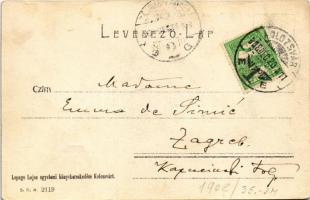 LEVELEZŐ-LAP
Madame
Czím
Emma de Simić
Zagreb
Kapucinski trg
Lepage Lajos egyetemi könyvkereskedése Kolozsvárt.
2119
1902/35.-